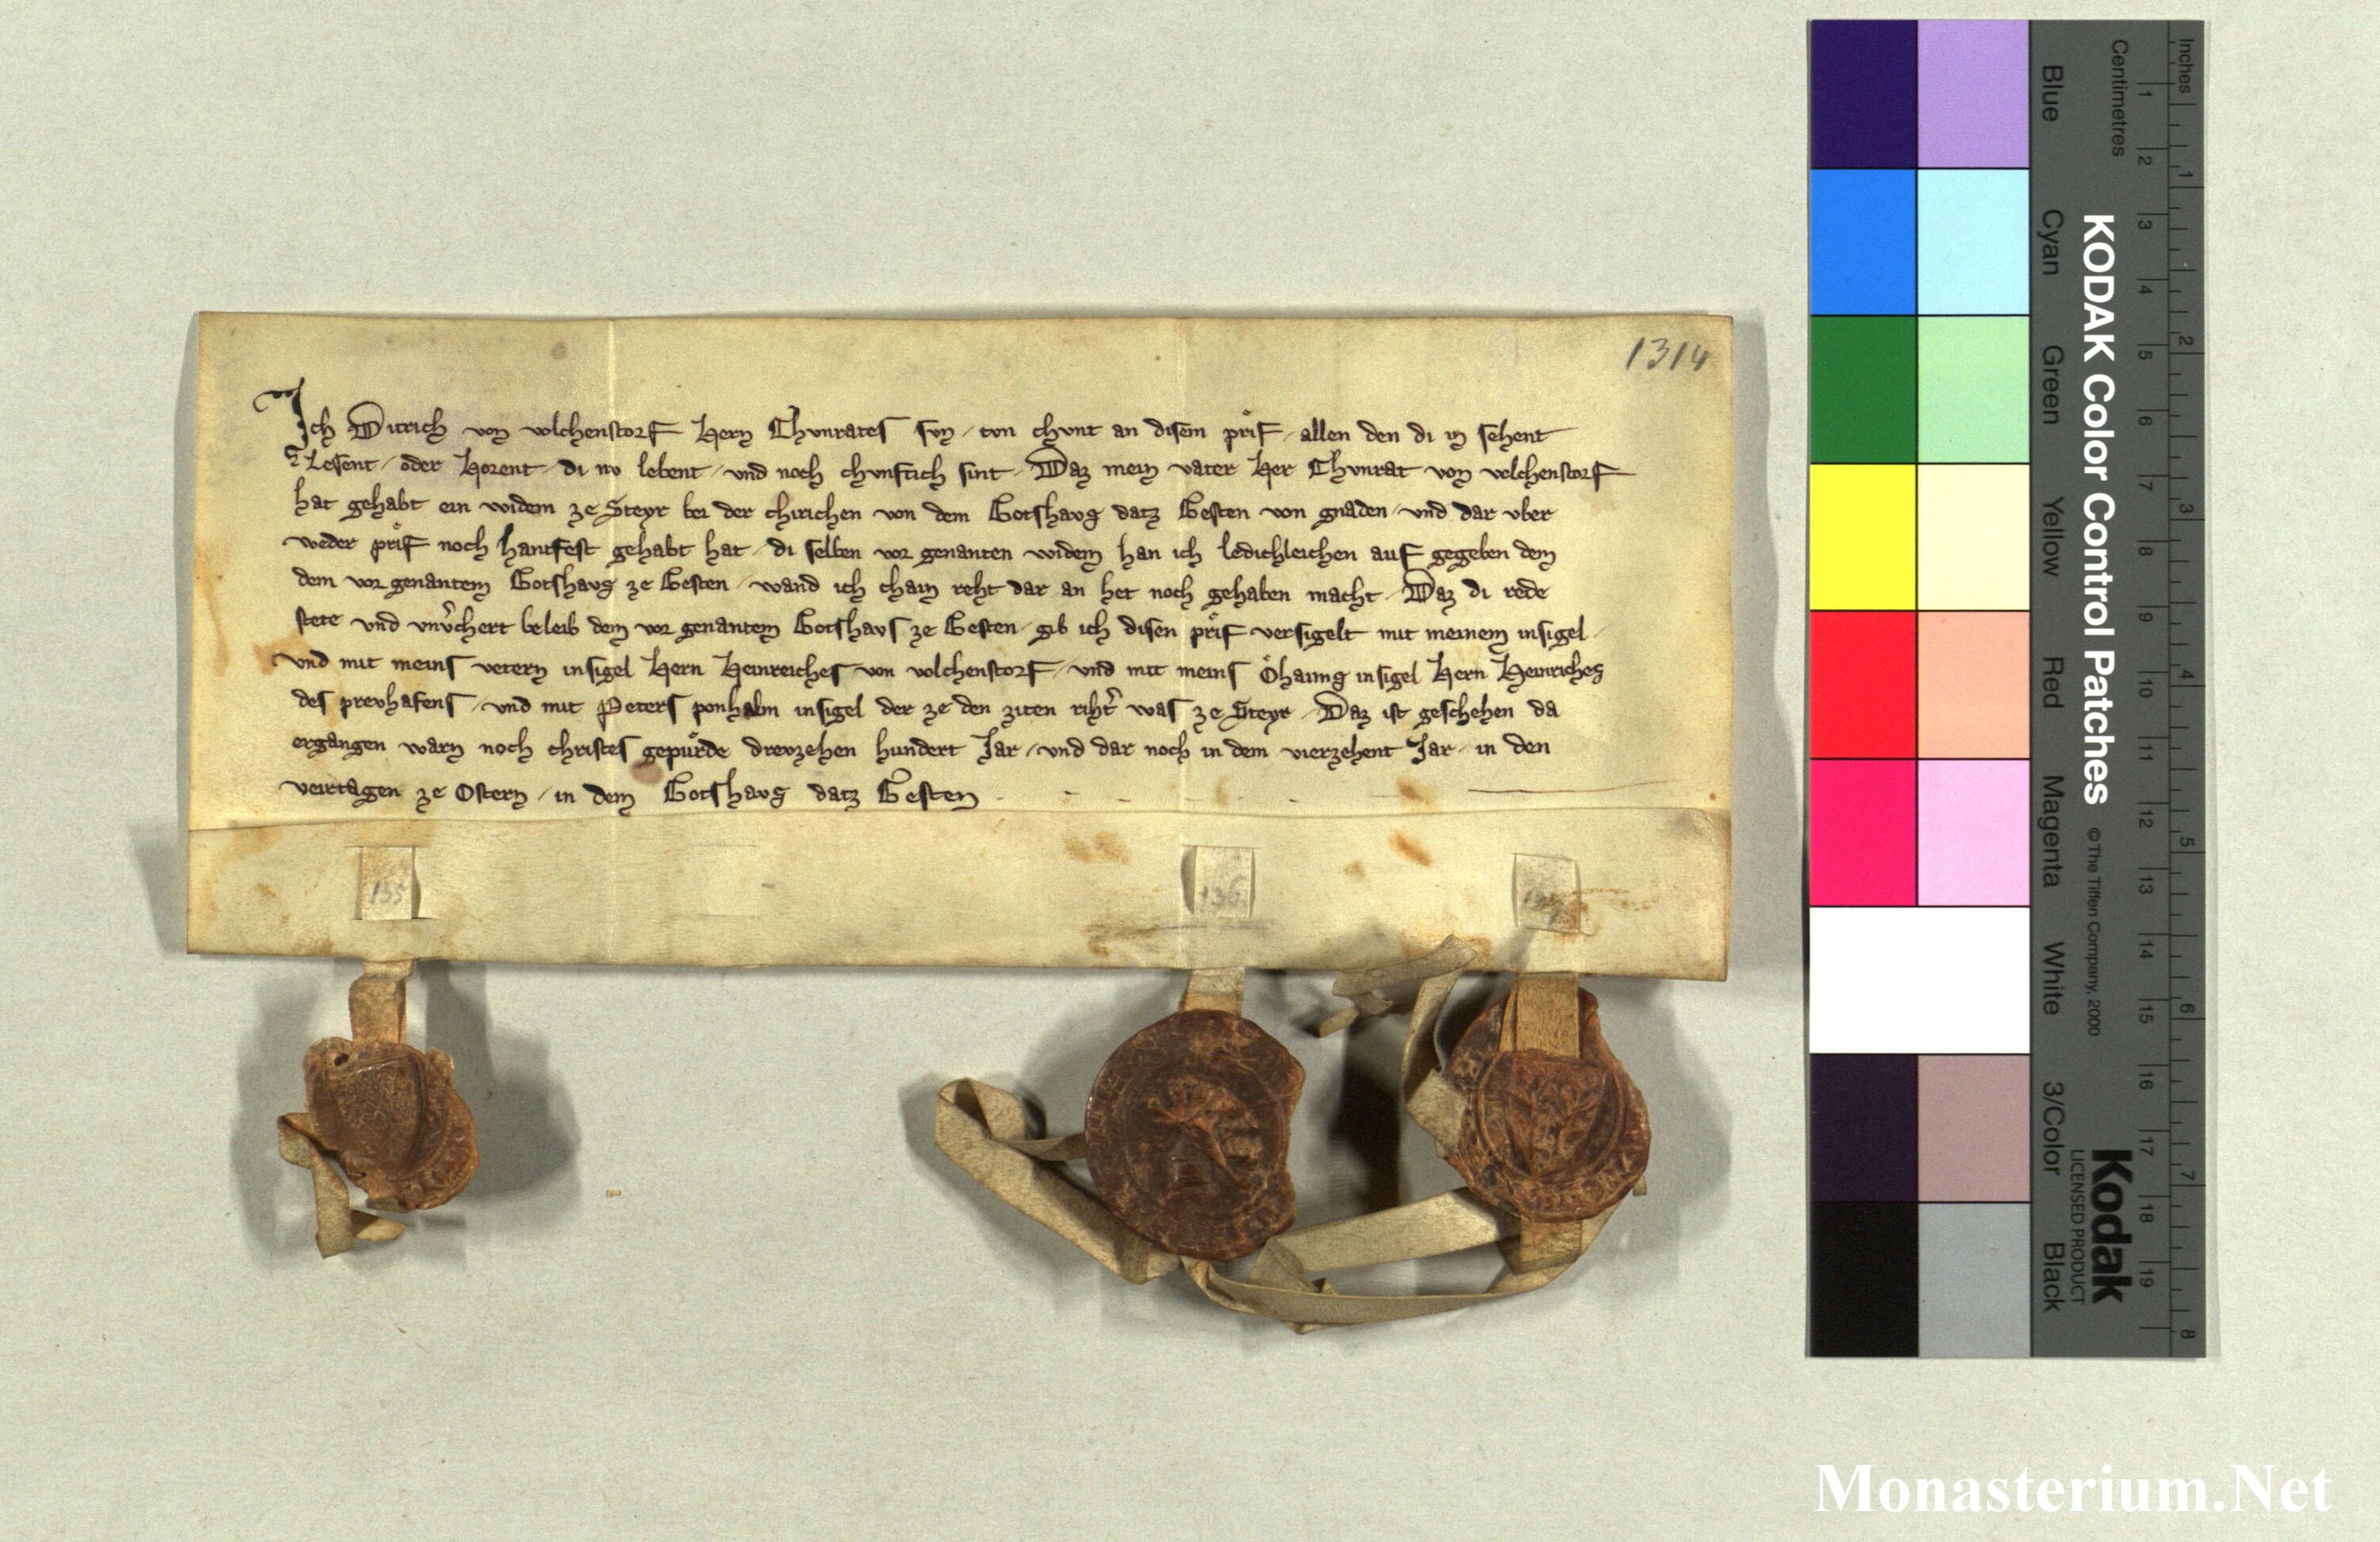 1314
Ich Ditrich von volchenstorf Hern Chvnrates svn / tvn chvnt an disem prif / allen den di in sehent
Lesent / oder Horent / di nv lebent / vnd noch chvnftich sint / Daz mein vater Her Chvnrat von volchenstorf
hat gehabt ein widem ze Steyr bei der chirichen von dem Gotshavs datz Gersten von gnaden / vnd dar vber
weder prif noch hantfest gehabt hat / di selben vor genanten widem han ich ledichleichen auf gegeben dem
dem vor genantem Gotshavs ze Gersten / wand ich chain reht dar an het noch gehaben macht / Daz di rede
stete vnd vnv̾chert beleib dem vor genantem Gotshavs ze Gersten / gib ich disen prif versigelt mit meinem insigel /
vnd mit meins vetern insigel Hern Heinreiches von volchenstorf / vnd mit meins Ohaims insigel Hern Heinriches
des prevhafens / vnd mit Peters ponhalm insigel der ze den ziten riht̾ was ze Steyr / Daz ist geschehen da
ergangen warn noch christes gepürde drevzehen hundert Jar / vnd dar noch in dem vierzehent Jar / in den
veirtagen ze Ostern / in dem Gotshavs datz Gersten
135
136
137
Inches
Centimetres
1 2 3 4 5 6 7 8 9 10 11 12 13 14 15 16 17 18 19
1 2 3 4 5 6 7 8
KODAK Color Control Patches
© The Tiffen Company, 2000
Kodak
LICENSED PRODUCT
Blue
Cyan
Green
Yellow
Red
Magenta
White
3/Color
Black
Monasterium.Net